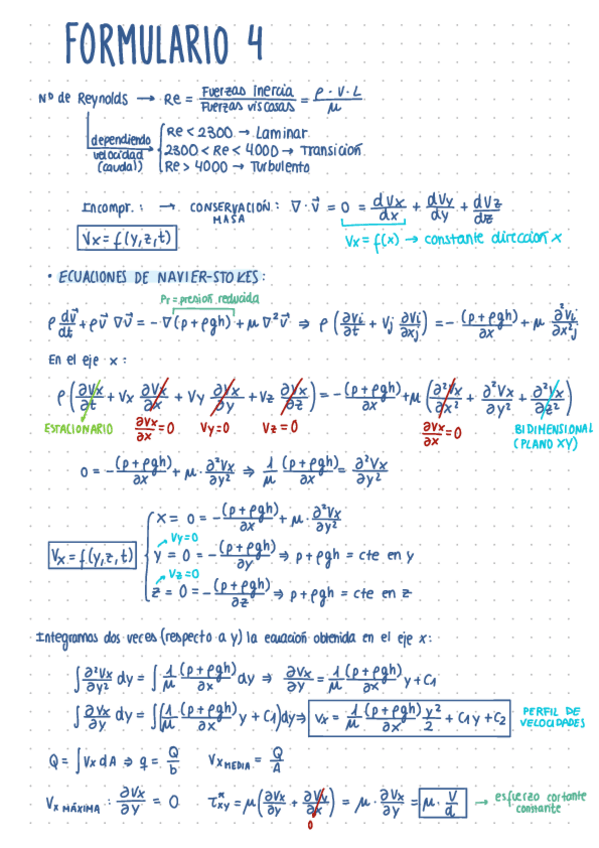 FORMULARIO 4
Nº de Reynolds → Re = Fuerzas Inercia / Fuerzas viscosas = ρ · V · L / μ
dependiendo velocidad (caudal)
Re < 2300 → Laminar
2300 < Re < 4000 → Transición
Re > 4000 → Turbulento
Incompr. : → CONSERVACIÓN MASA : ∇ · v⃗ = 0 = dVx/dx + dVy/dy + dVz/dz
Vx = f(y,z,t)
Vx = f(x) → constante dirección x
• ECUACIONES DE NAVIER-STOKES:
Pr = presión reducida
ρ dv⃗/dt + ρv⃗ ∇v⃗ = - ∇(p + ρgh) + μ ∇²v⃗ ⇒ ρ (∂Vi/∂t + Vj ∂Vi/∂xj) = - (p + ρgh)/∂x + μ ∂²Vi/∂x²j
En el eje x:
ρ (∂Vx/∂t + Vx ∂Vx/∂x + Vy ∂Vx/∂y + Vz ∂Vx/∂z) = - (p + ρgh)/∂x + μ (∂²Vx/∂x² + ∂²Vx/∂y² + ∂²Vx/∂z²)
ESTACIONARIO ∂Vx/∂x = 0 Vy = 0 Vz = 0 ∂Vx/∂x = 0 BIDIMENSIONAL
(PLANO XY)
0 = - (p + ρgh)/∂x + μ · ∂²Vx/∂y² ⇒ 1/μ (p + ρgh)/∂x = ∂²Vx/∂y²
x = 0 = - (p + ρgh)/∂x + μ · ∂²Vx/∂y²
Vy = 0
Vx = f(y,z,t)
y = 0 = - (p + ρgh)/∂y ⇒ p + ρgh = cte en y
Vz = 0
z = 0 = - (p + ρgh)/∂z ⇒ p + ρgh = cte en z
Integramos dos veces (respecto a y) la ecuación obtenida en el eje x:
∫ ∂²Vx/∂y² dy = ∫ 1/μ (p + ρgh)/∂x dy ⇒ ∂Vx/∂y = 1/μ (p + ρgh)/∂x y + C1
∫ ∂Vx/∂y dy = ∫ (1/μ (p + ρgh)/∂x y + C1) dy ⇒ Vx = 1/μ (p + ρgh)/∂x y²/2 + C1 y + C2
PERFIL DE VELOCIDADES
Q = ∫ Vx dA ⇒ q = Q/b Vx MEDIA = Q/A
Vx MÁXIMA : ∂Vx/∂y = 0 τxy = μ (∂Vx/∂y + ∂Vy/∂x) = μ · ∂Vx/∂y = μ · V/d → esfuerzo cortante constante
0